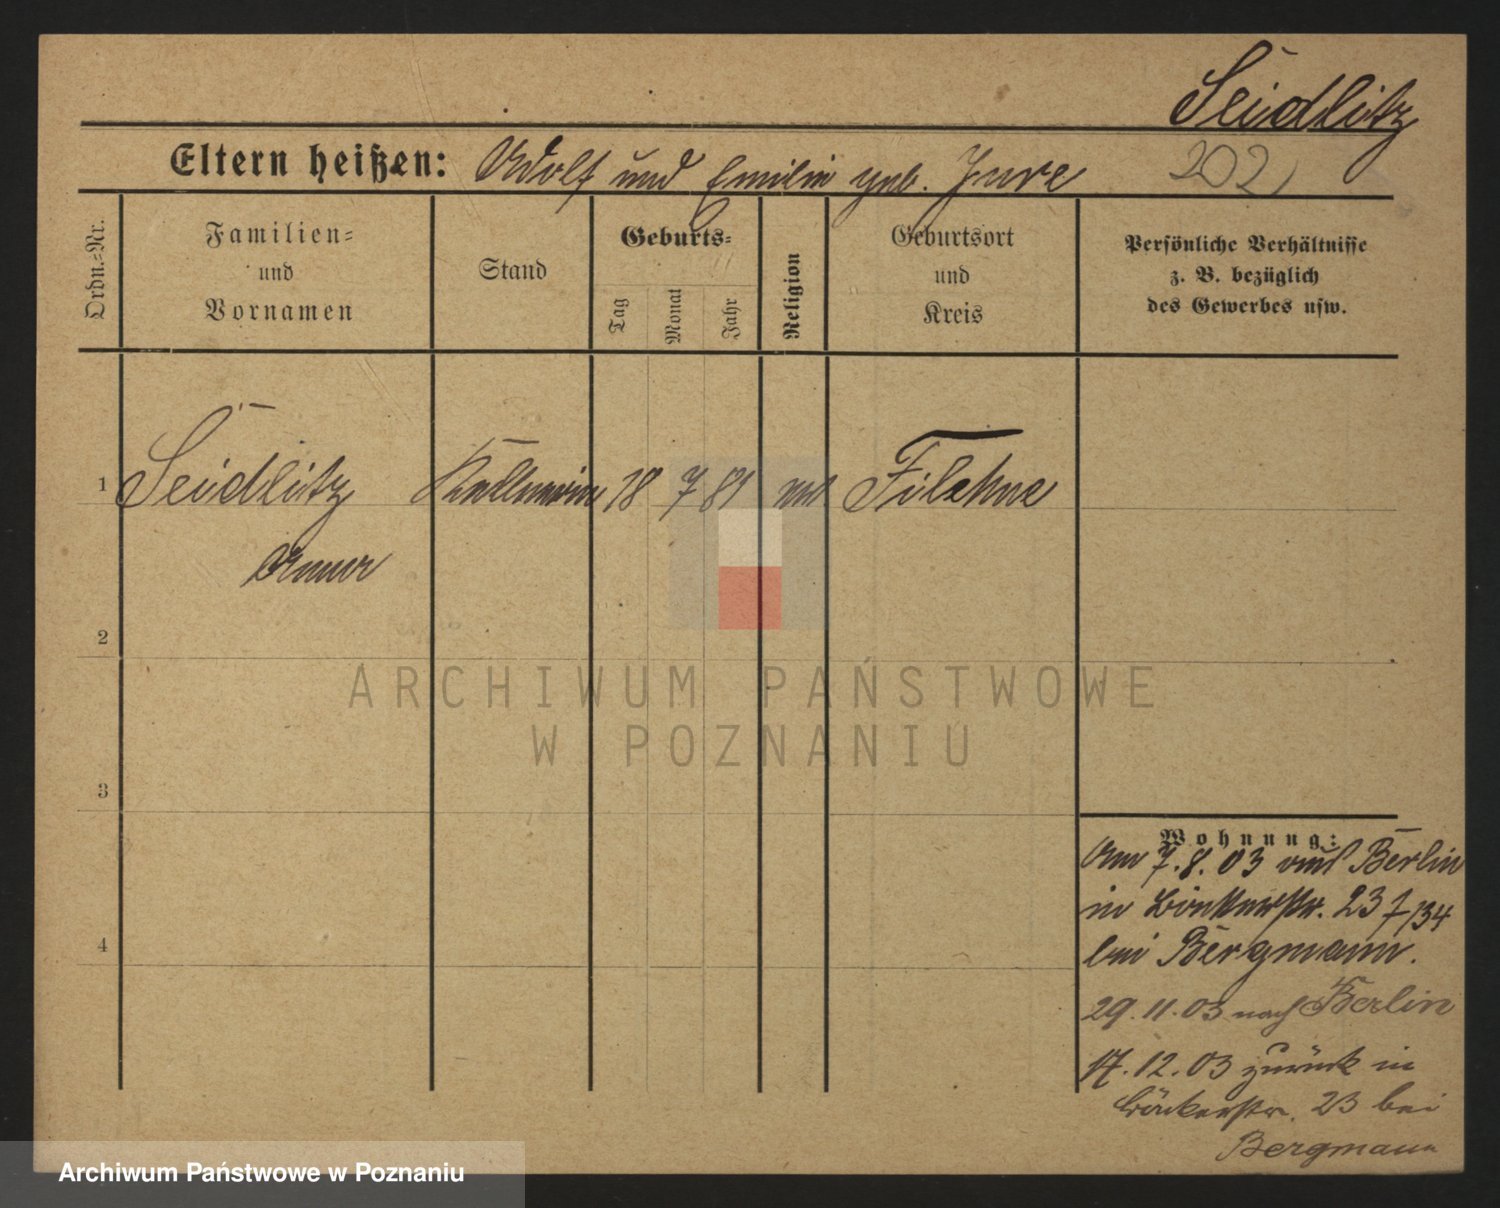 Seidlitz
Eltern heißen: Adolf und Emilie geb. Jure
202
Ordn.-Nr.
Familien-
und
Vornamen
Stand
Geburts-
Tag
Monat
Jahr
Religion
Geburtsort
und
Kreis
Persönliche Verhältnisse
z. B. bezüglich
des Gewerbes usw.
1 Seidlitz Kellnerin 18 7 81 Filehne
Anna
2
3
4
ARCHIWUM PAŃSTWOWE
W POZNANIU
Wohnung:
Am 7.8.03 aus Berlin
in Bäckerstr. 23
bei Bergmann.
29.11.03 nach Berlin
17.12.03 zurück in
Bäckerstr. 23 bei
Bergmann
Archiwum Państwowe w Poznaniu